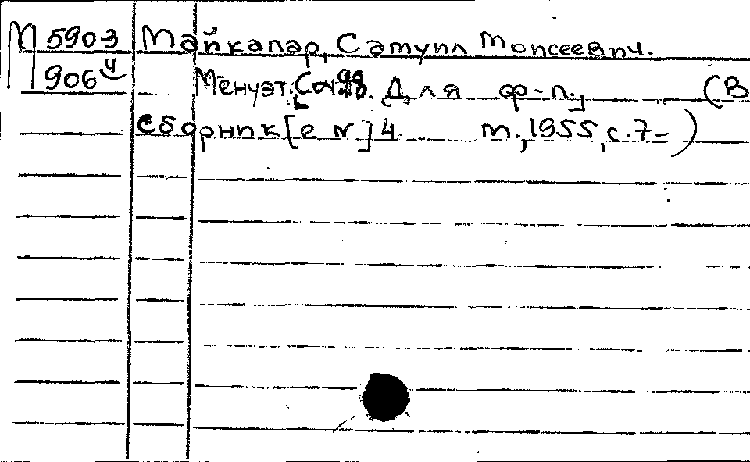 М 5903 Майкапар, Самуил Моисеевич.
906ч Менуэт. Соч. Для ф-п. (В
сборник [е №] 4 м., 1955, с. 7-)